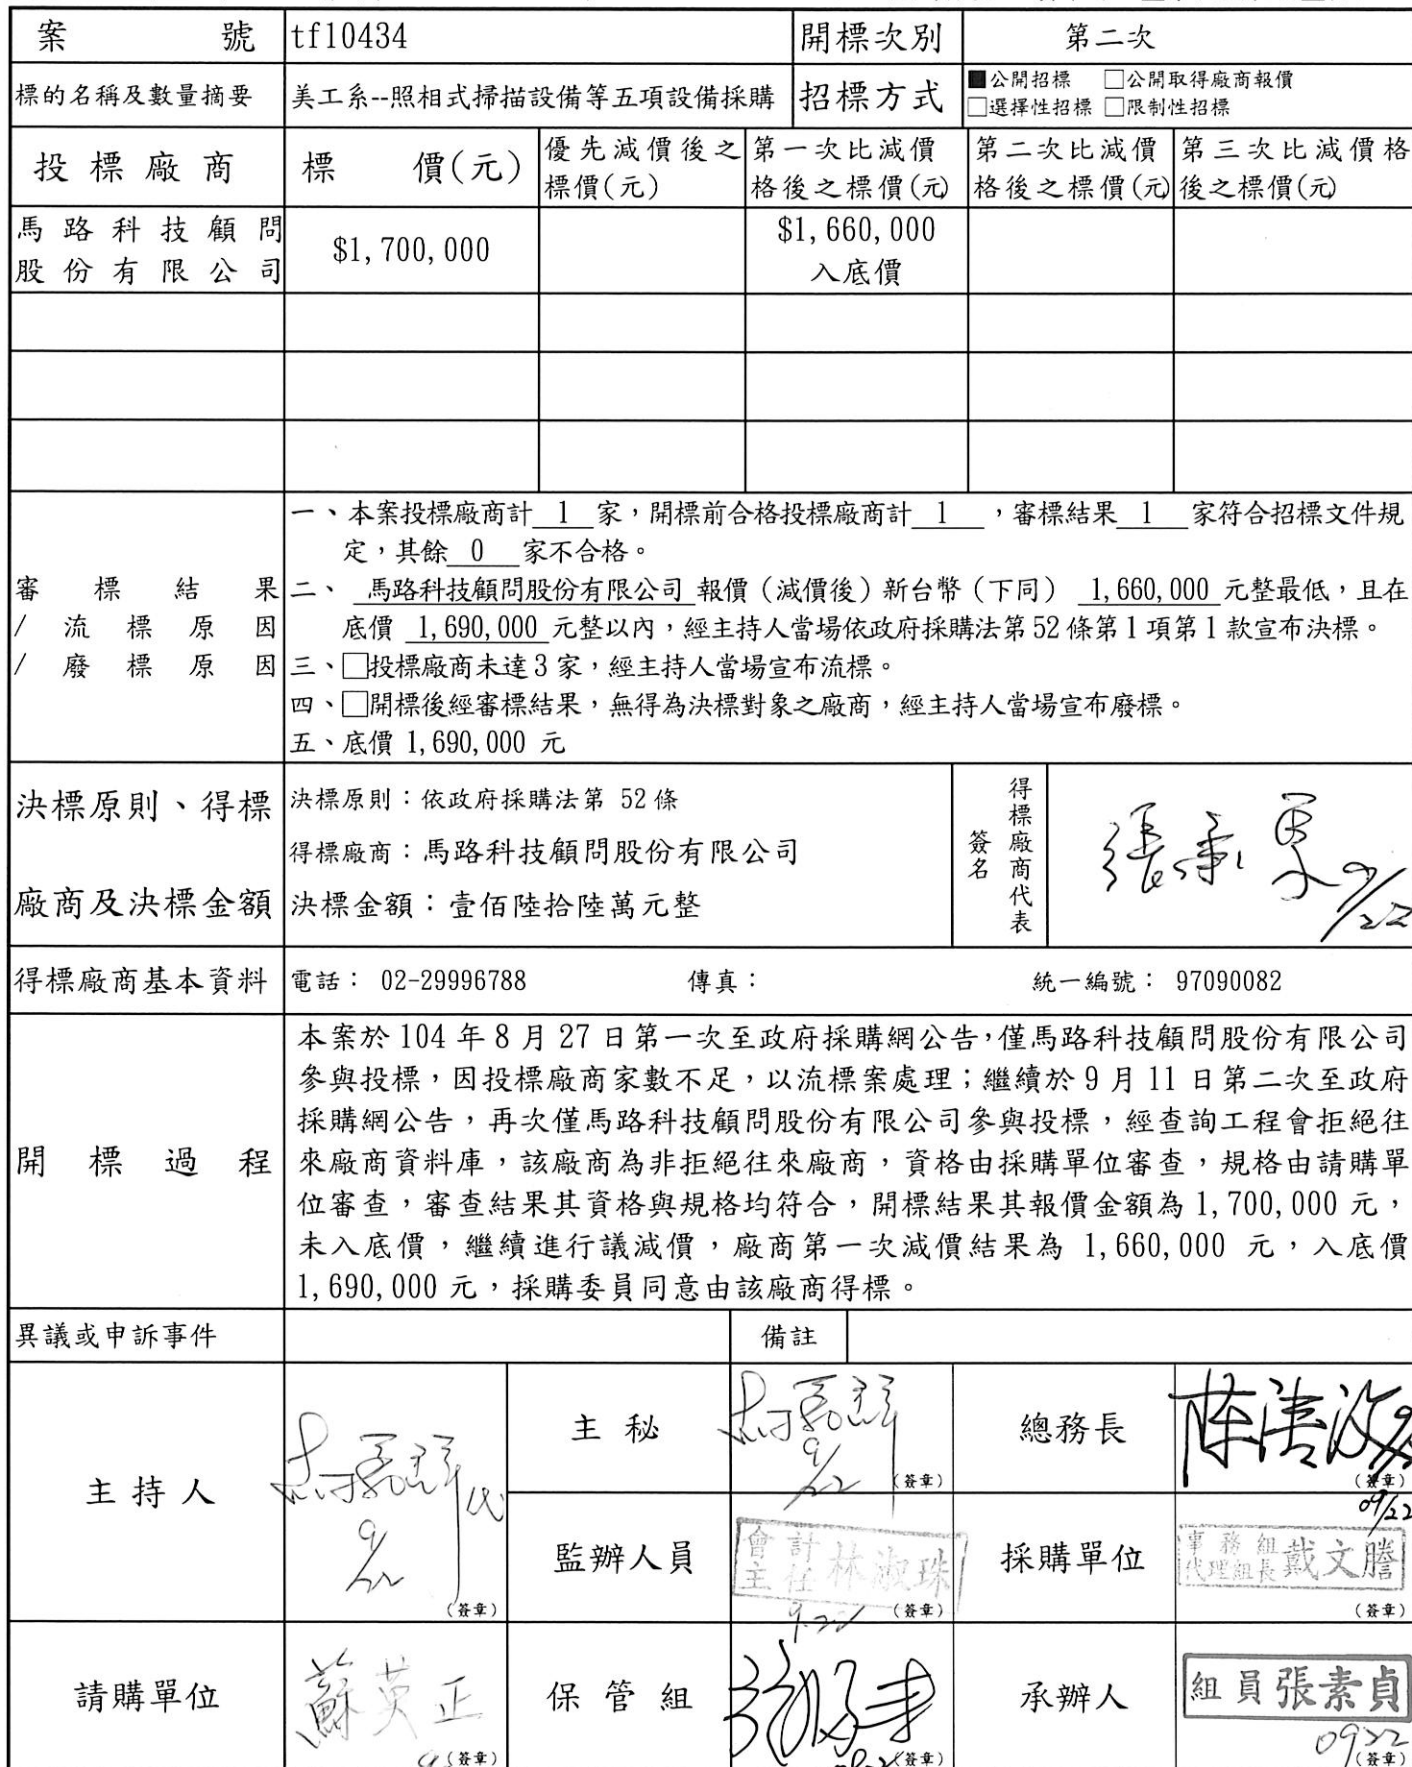 案號 tf10434 開標次別 第二次
標的名稱及數量摘要 美工系--照相式掃描設備等五項設備採購 招標方式 ■公開招標 □公開取得廠商報價
□選擇性招標 □限制性招標
投標廠商 標價(元) 優先減價後之標價(元) 第一次比減價格後之標價(元) 第二次比減價格後之標價(元) 第三次比減價格後之標價(元)
馬路科技顧問股份有限公司 $1,700,000 $1,660,000
入底價
審標結果
/流標原因
/廢標原因
一、本案投標廠商計 1 家,開標前合格投標廠商計 1 ,審標結果 1 家符合招標文件規
定,其餘 0 家不合格。
二、 馬路科技顧問股份有限公司 報價(減價後)新台幣(下同) 1,660,000 元整最低,且在
底價 1,690,000 元整以內,經主持人當場依政府採購法第52條第1項第1款宣布決標。
三、□投標廠商未達3家,經主持人當場宣布流標。
四、□開標後經審標結果,無得為決標對象之廠商,經主持人當場宣布廢標。
五、底價 1,690,000 元
決標原則、得標
廠商及決標金額
決標原則:依政府採購法第 52條
得標廠商:馬路科技顧問股份有限公司
決標金額:壹佰陸拾陸萬元整
得標廠商代表
簽名
9/22
得標廠商基本資料 電話: 02-29996788 傳真: 統一編號: 97090082
開標過程
本案於104年8月27日第一次至政府採購網公告,僅馬路科技顧問股份有限公司
參與投標,因投標廠商家數不足,以流標案處理;繼續於9月11日第二次至政府
採購網公告,再次僅馬路科技顧問股份有限公司參與投標,經查詢工程會拒絕往
來廠商資料庫,該廠商為非拒絕往來廠商,資格由採購單位審查,規格由請購單
位審查,審查結果其資格與規格均符合,開標結果其報價金額為1,700,000元,
未入底價,繼續進行議減價,廠商第一次減價結果為 1,660,000 元,入底價
1,690,000元,採購委員同意由該廠商得標。
異議或申訴事件 備註
主持人 代 9/22 (簽章)
主秘 9/22 (簽章)
總務長 (簽章) 09/22
監辦人員 會計主任 林淑珠 9.22 (簽章)
採購單位 事務組代理組長 戴文謄 (簽章)
請購單位 蘇英正 (簽章)
保管組 (簽章)
承辦人 組員張素貞 0922 (簽章)